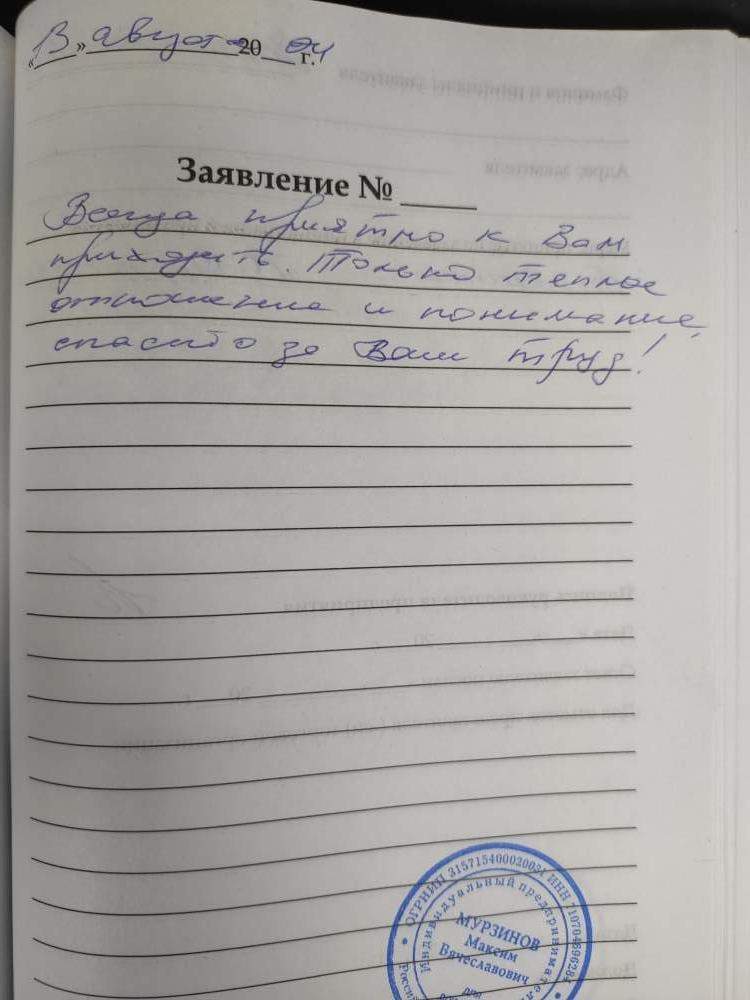 «13» август 2024 г.
Заявление № ____
Всегда приятно к Вам
приходить. Только теплое
отношение и понимание,
спасибо за Ваш труд!
ОГРНИП 315715400020031 ИНН
Индивидуальный предприниматель
МУРЗИНОВ
Максим
Вячеславович